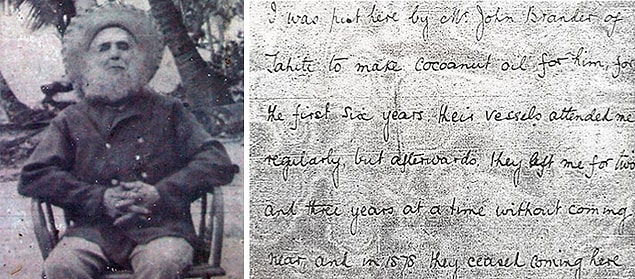 I was put here by Mr. John Brander of
Tahite to make cocoanut oil for him, for
the first six years. their vessels attended me
regularly, but afterwards, they left me for two
and three years at a time without coming
near, and in 1878 they ceased coming here